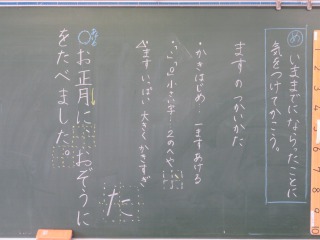 め いままでにならったことに
気をつけてかこう。
ますのつかいかた
・かきはじめ 一ますあける
・「、」「。」小さい字 2のへや
・ますいっぱい 大きくかきすぎ
た
あき
お正月に、おぞうに
をたべました。